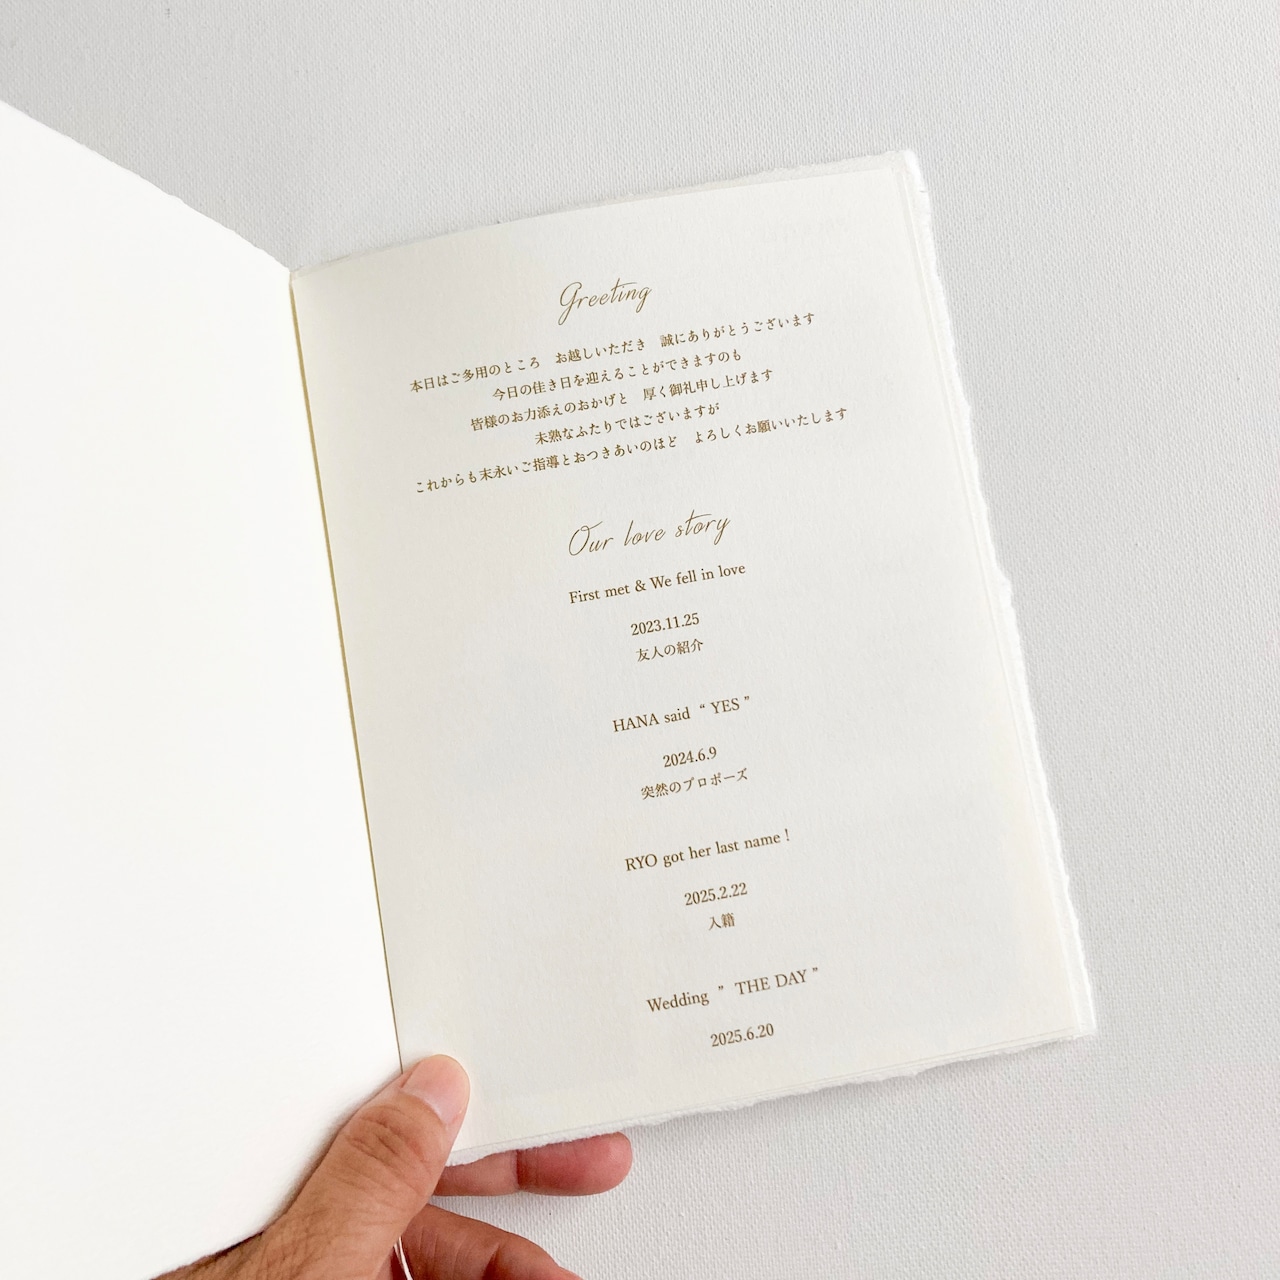 Greeting
本日はご多用のところ　お越しいただき　誠にありがとうございます
今日の佳き日を迎えることができますのも
皆様のお力添えのおかげと　厚く御礼申し上げます
未熟なふたりではございますが
これからも末永いご指導とおつきあいのほど　よろしくお願いいたします
Our love story
First met & We fell in love
2023.11.25
友人の紹介
HANA said “ YES ”
2024.6.9
突然のプロポーズ
RYO got her last name !
2025.2.22
入籍
Wedding ” THE DAY ”
2025.6.20